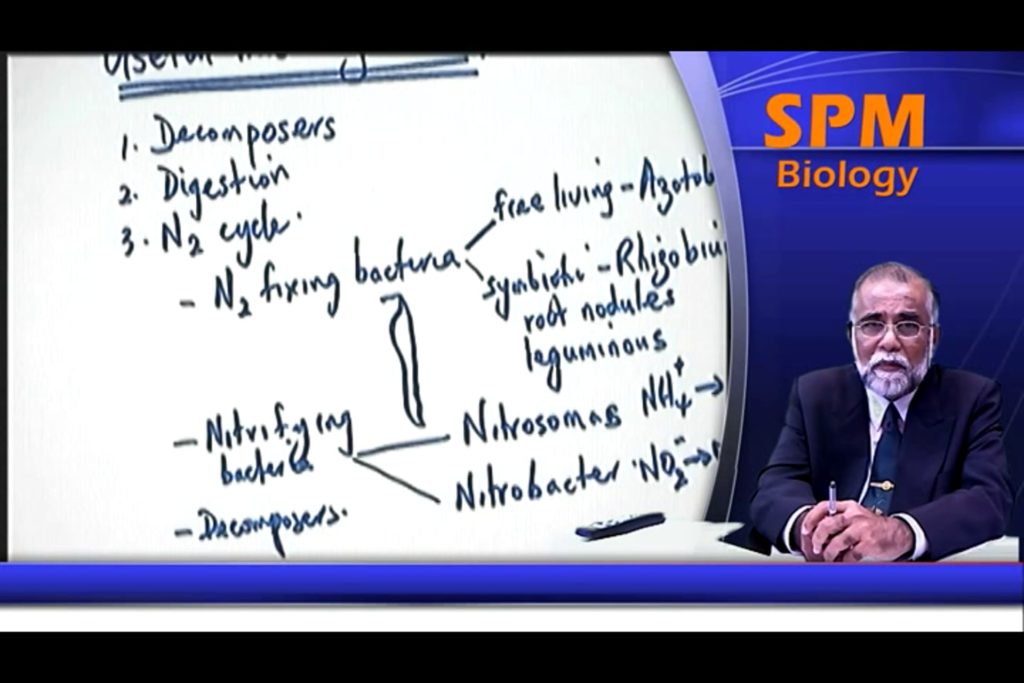 Useful
1. Decomposers
2. Digestion
3. N2 cycle.
- N2 fixing bacteria
free living - Azotob
symbiotic - Rhizobiu
root nodules
leguminous
- Nitrifying
bacteria
Nitrosomas NH4+ →
Nitrobacter NO2- →
- Decomposers.
SPM
Biology